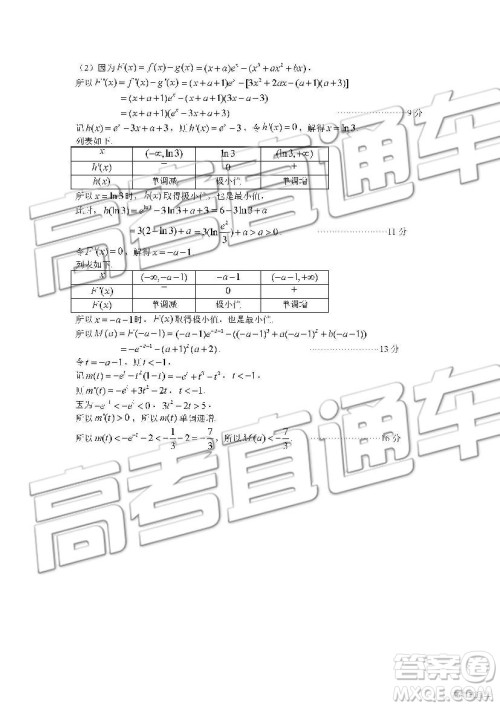 (2)因为F(x)=f(x)-g(x)=(x+a)eˣ-(x³+ax²+bx),
所以F'(x)=f'(x)-g'(x)=(x+a+1)eˣ-[3x²+2ax-(a+1)(a+3)]
=(x+a+1)eˣ-(x+a+1)(3x-a-3)
=(x+a+1)(eˣ-3x+a+3) 9分
记h(x)=eˣ-3x+a+3,则h'(x)=eˣ-3,令h'(x)=0,解得x=ln3.
列表如下.
x (-∞,ln3) ln3 (ln3,+∞)
h'(x) − 0 +
h(x) 单调减 极小值 单调增
所以x=ln3时,h(x)取得极小值,也是最小值,
此时,h(ln3)=e^{ln3}-3ln3+a+3=6-3ln3+a
=3(2-ln3)+a=3(ln e²/3)+a>a>0. 11分
令F'(x)=0,解得x=-a-1.
列表如下.
x (-∞,-a-1) -a-1 (-a-1,+∞)
F'(x) − 0 +
F(x) 单调减 极小值 单调增
所以x=-a-1时,F(x)取得极小值,也是最小值.
所以M(a)=F(-a-1)=(-a-1+a)e^{-a-1}-((-a-1)³+a(-a-1)²+b(-a-1))
=-e^{-a-1}-(a+1)²(a+2). 13分
令t=-a-1,则t<-1,
记m(t)=-eᵗ-t²(1-t)=-eᵗ+t³-t²,t<-1,
则m'(t)=-eᵗ+3t²-2t,t<-1.
因为-e⁻¹<-eᵗ<0,3t²-2t>5,
所以m'(t)>0,所以m(t)单调递增.
所以m(t)<-e⁻ᵗ-2<-1/3-2=-7/3,所以M(a)<-7/3. 16分
高考直通车
高考直通车
高考直通车
答案圈